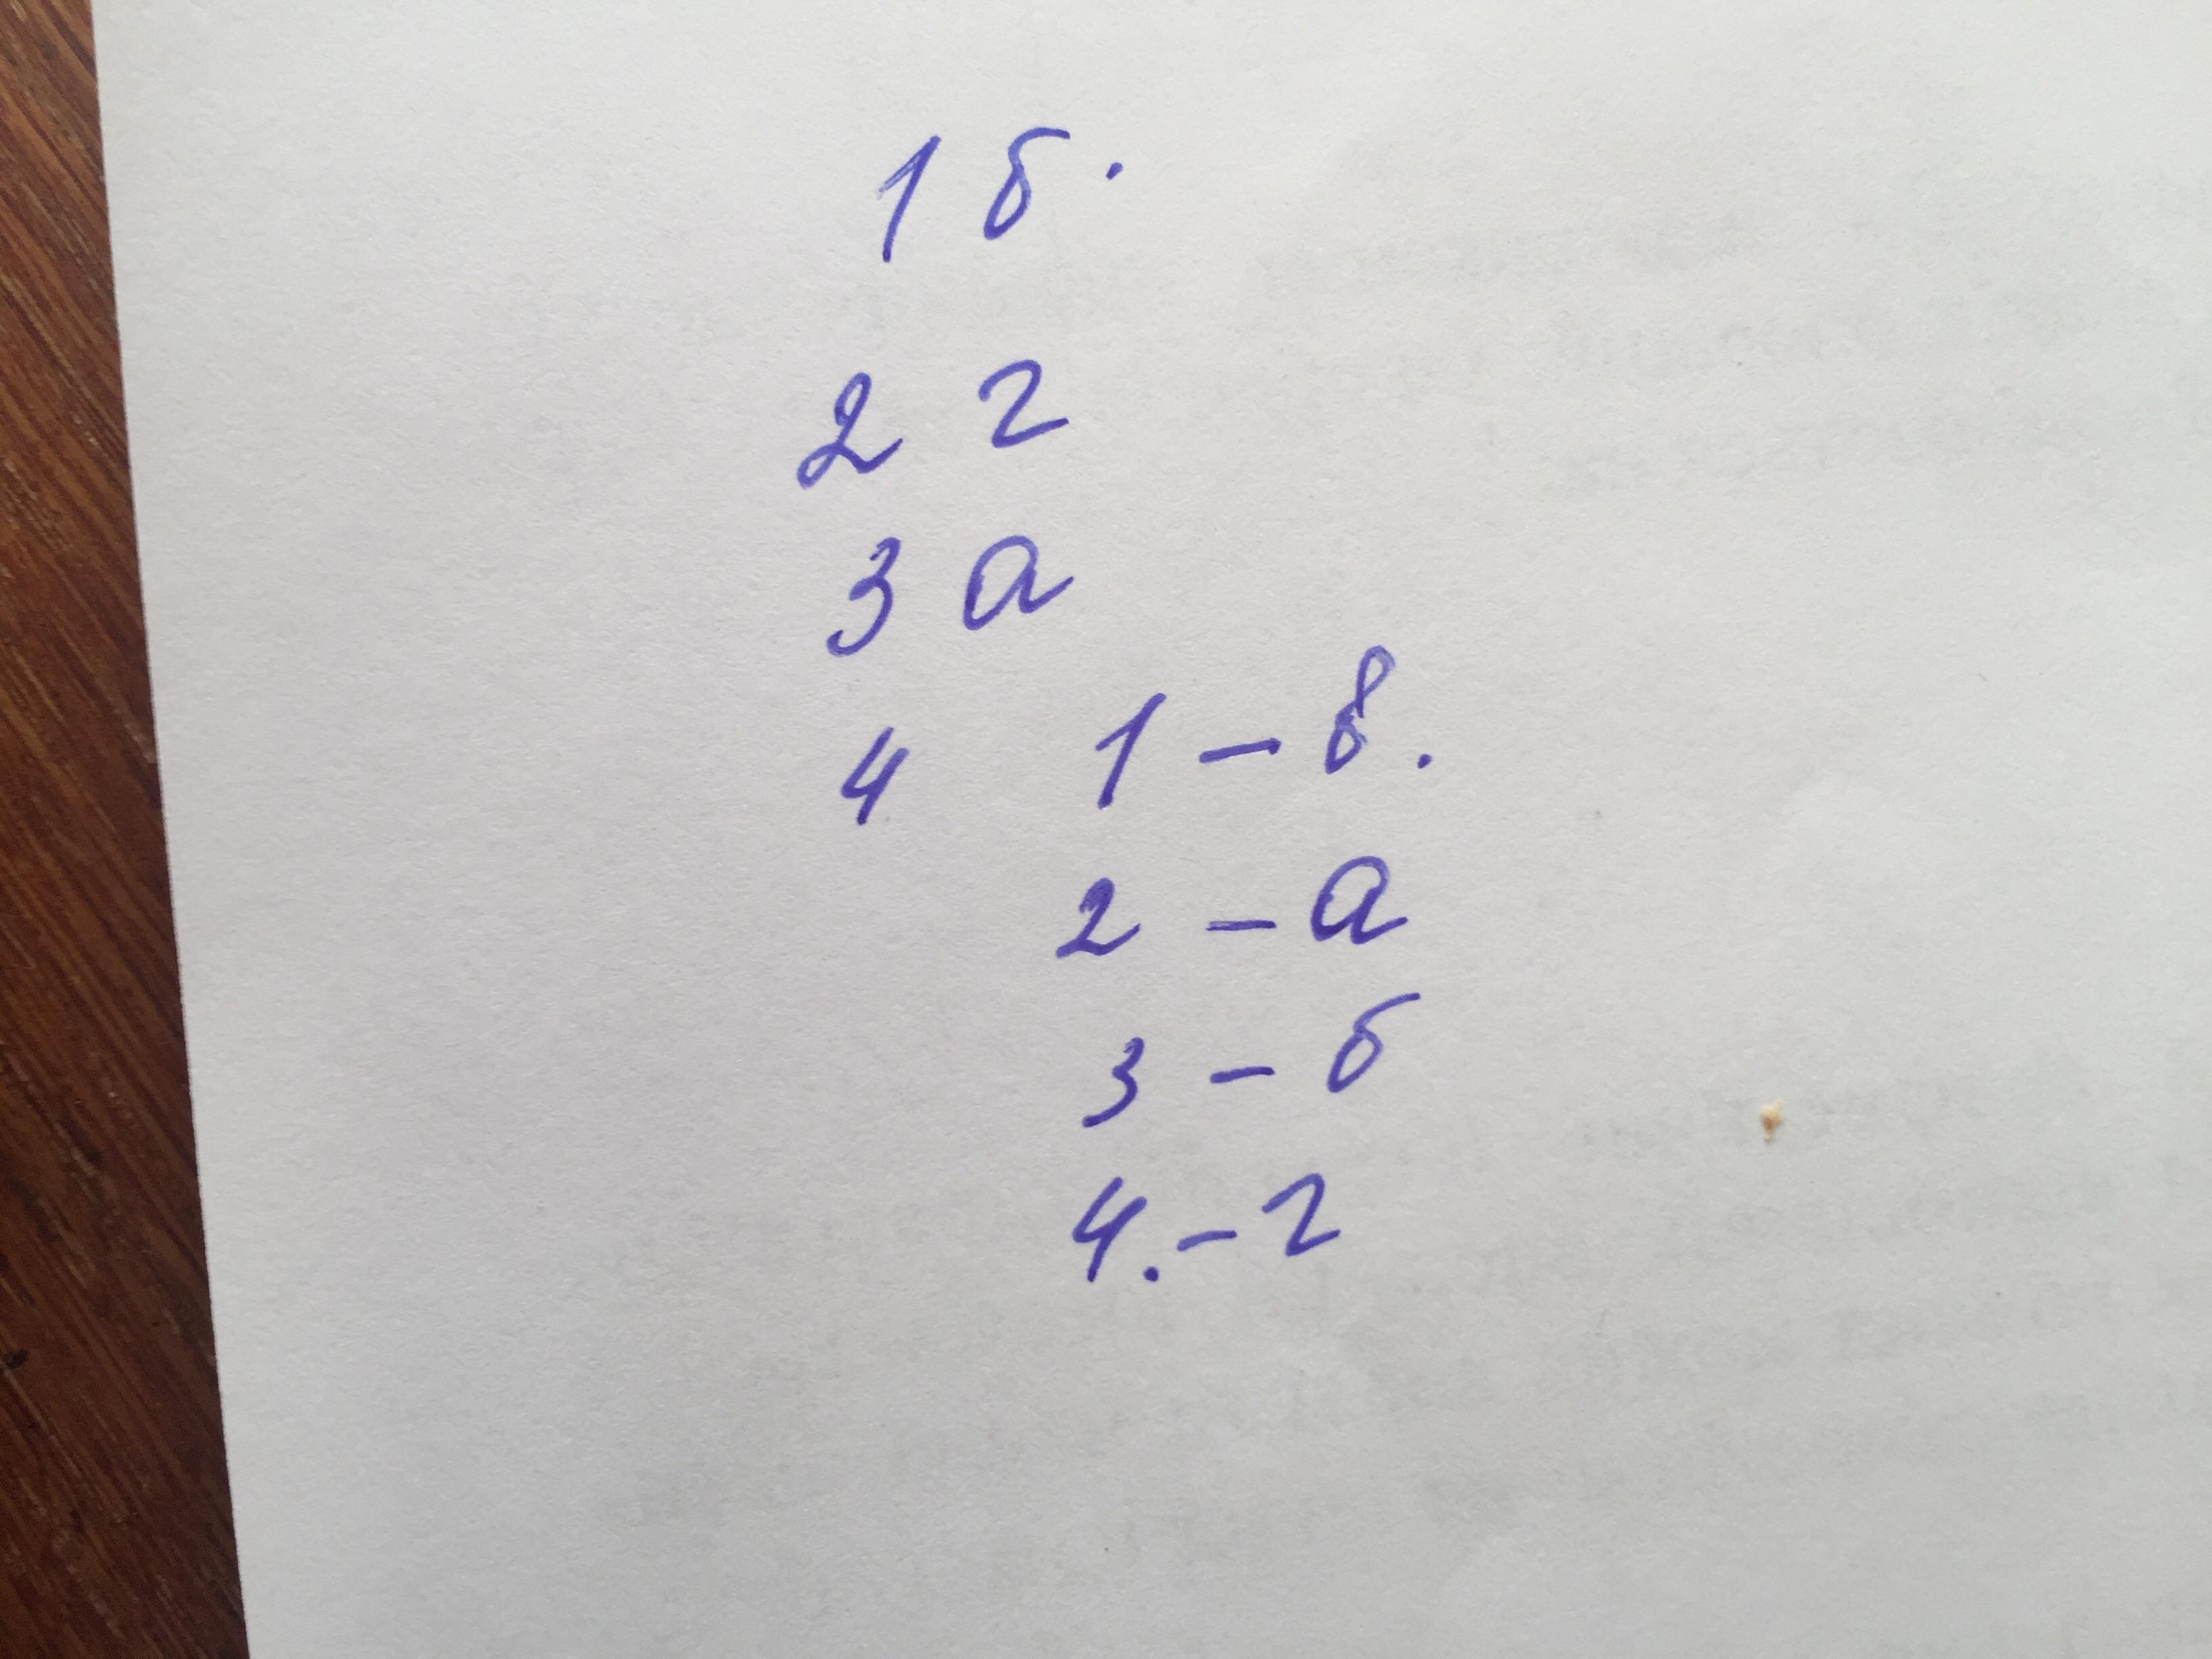 1 б.
2 г
3 а
4 1 – в.
2 – а
3 – б
4. – г